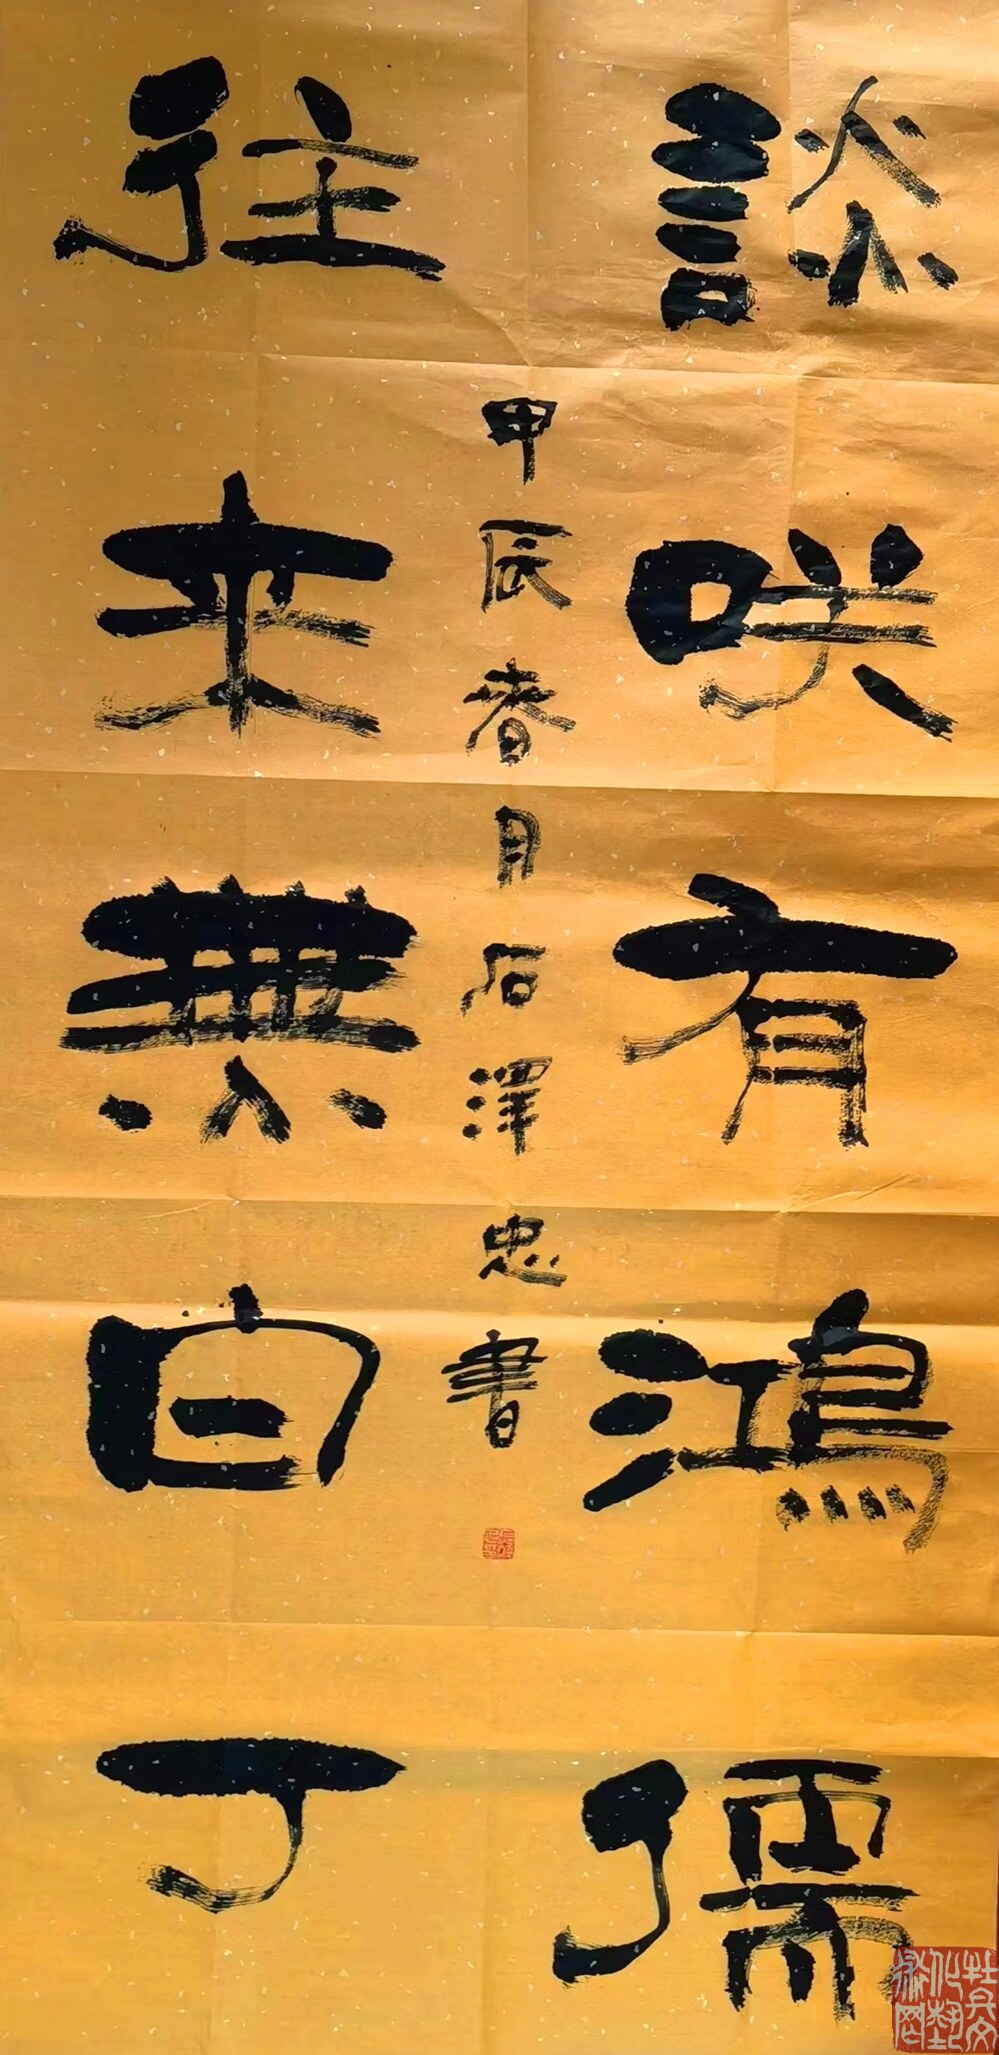 談咲有鴻儒
往来無白丁
甲辰春月石澤忠書